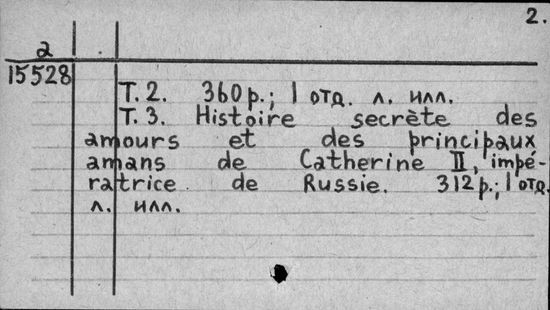 2.
2
15528
T.2. 360 p.; 1 отд. л. илл.
T.3. Histoire secrète des
amours et des principaux
amans de Catherine II, impé-
ratrice de Russie. 312 p.; 1 отд.
л. илл.